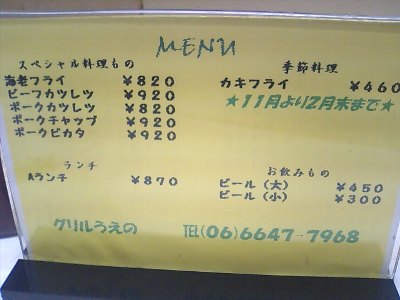 MENU
スペシャル料理もの
海老フライ ¥820
ビーフカツレツ ¥920
ポークカツレツ ¥820
ポークチャップ ¥920
ポークピカタ ¥920
季節料理
カキフライ ¥460
★11月より2月末まで★
ランチ
Aランチ ¥870
お飲みもの
ビール（大） ¥450
ビール（小） ¥300
グリルうえの TEL(06)6647-7968